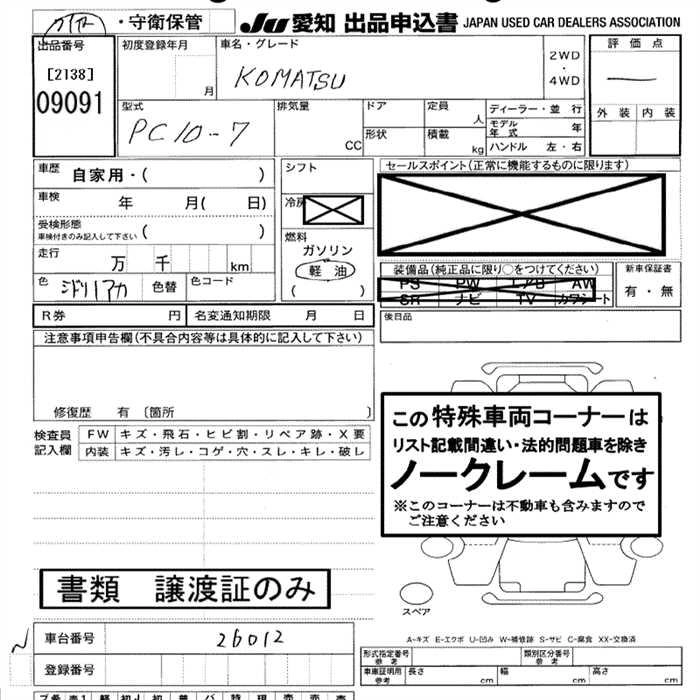 ・守衛保管
JU 愛知 出品申込書 JAPAN USED CAR DEALERS ASSOCIATION
出品番号
[2138]
09091
初度登録年月
月
車名・グレード
KOMATSU
2WD
・
4WD
評価点
外装 内装
型式
PC10-7
排気量
CC
ドア
形状
定員
人
積載
kg
ディーラー・並 行
モデル年式
年
ハンドル 左・右
車歴
自家用・( )
車検
年 月( 日)
受検形態
車検付きのみ記入して下さい
( )
走行
万 千 km
色
ミドリ/アカ
色替
色コード
シフト
冷房
燃料
ガソリン
軽 油
( )
セールスポイント(正常に機能するものに限ります)
装備品(純正品に限り○をつけてください)
PS PW エアB AW
SR ナビ TV カワシート
新車保証書
有・無
R券 円
名変通知期限 月 日
後日品
注意事項申告欄(不具合内容等は具体的に記入して下さい)
修復歴 有 〔箇所 〕
検査員
記入欄
FW キズ・飛石・ヒビ割・リペア跡・X要
内装 キズ・汚レ・コゲ・穴・スレ・キレ・破レ
この特殊車両コーナーは
リスト記載間違い・法的問題車を除き
ノークレームです
※このコーナーは不動車も含みますので
ご注意ください
スペア
書類 譲渡証のみ
A-キズ E-エクボ U-凹み W-補修跡 S-サビ C-腐食 XX-交換済
車台番号
26012
登録番号
形式指定番号
参考
類別区分番号
参考
車庫証明用
参考
長さ cm
幅 cm
高さ cm